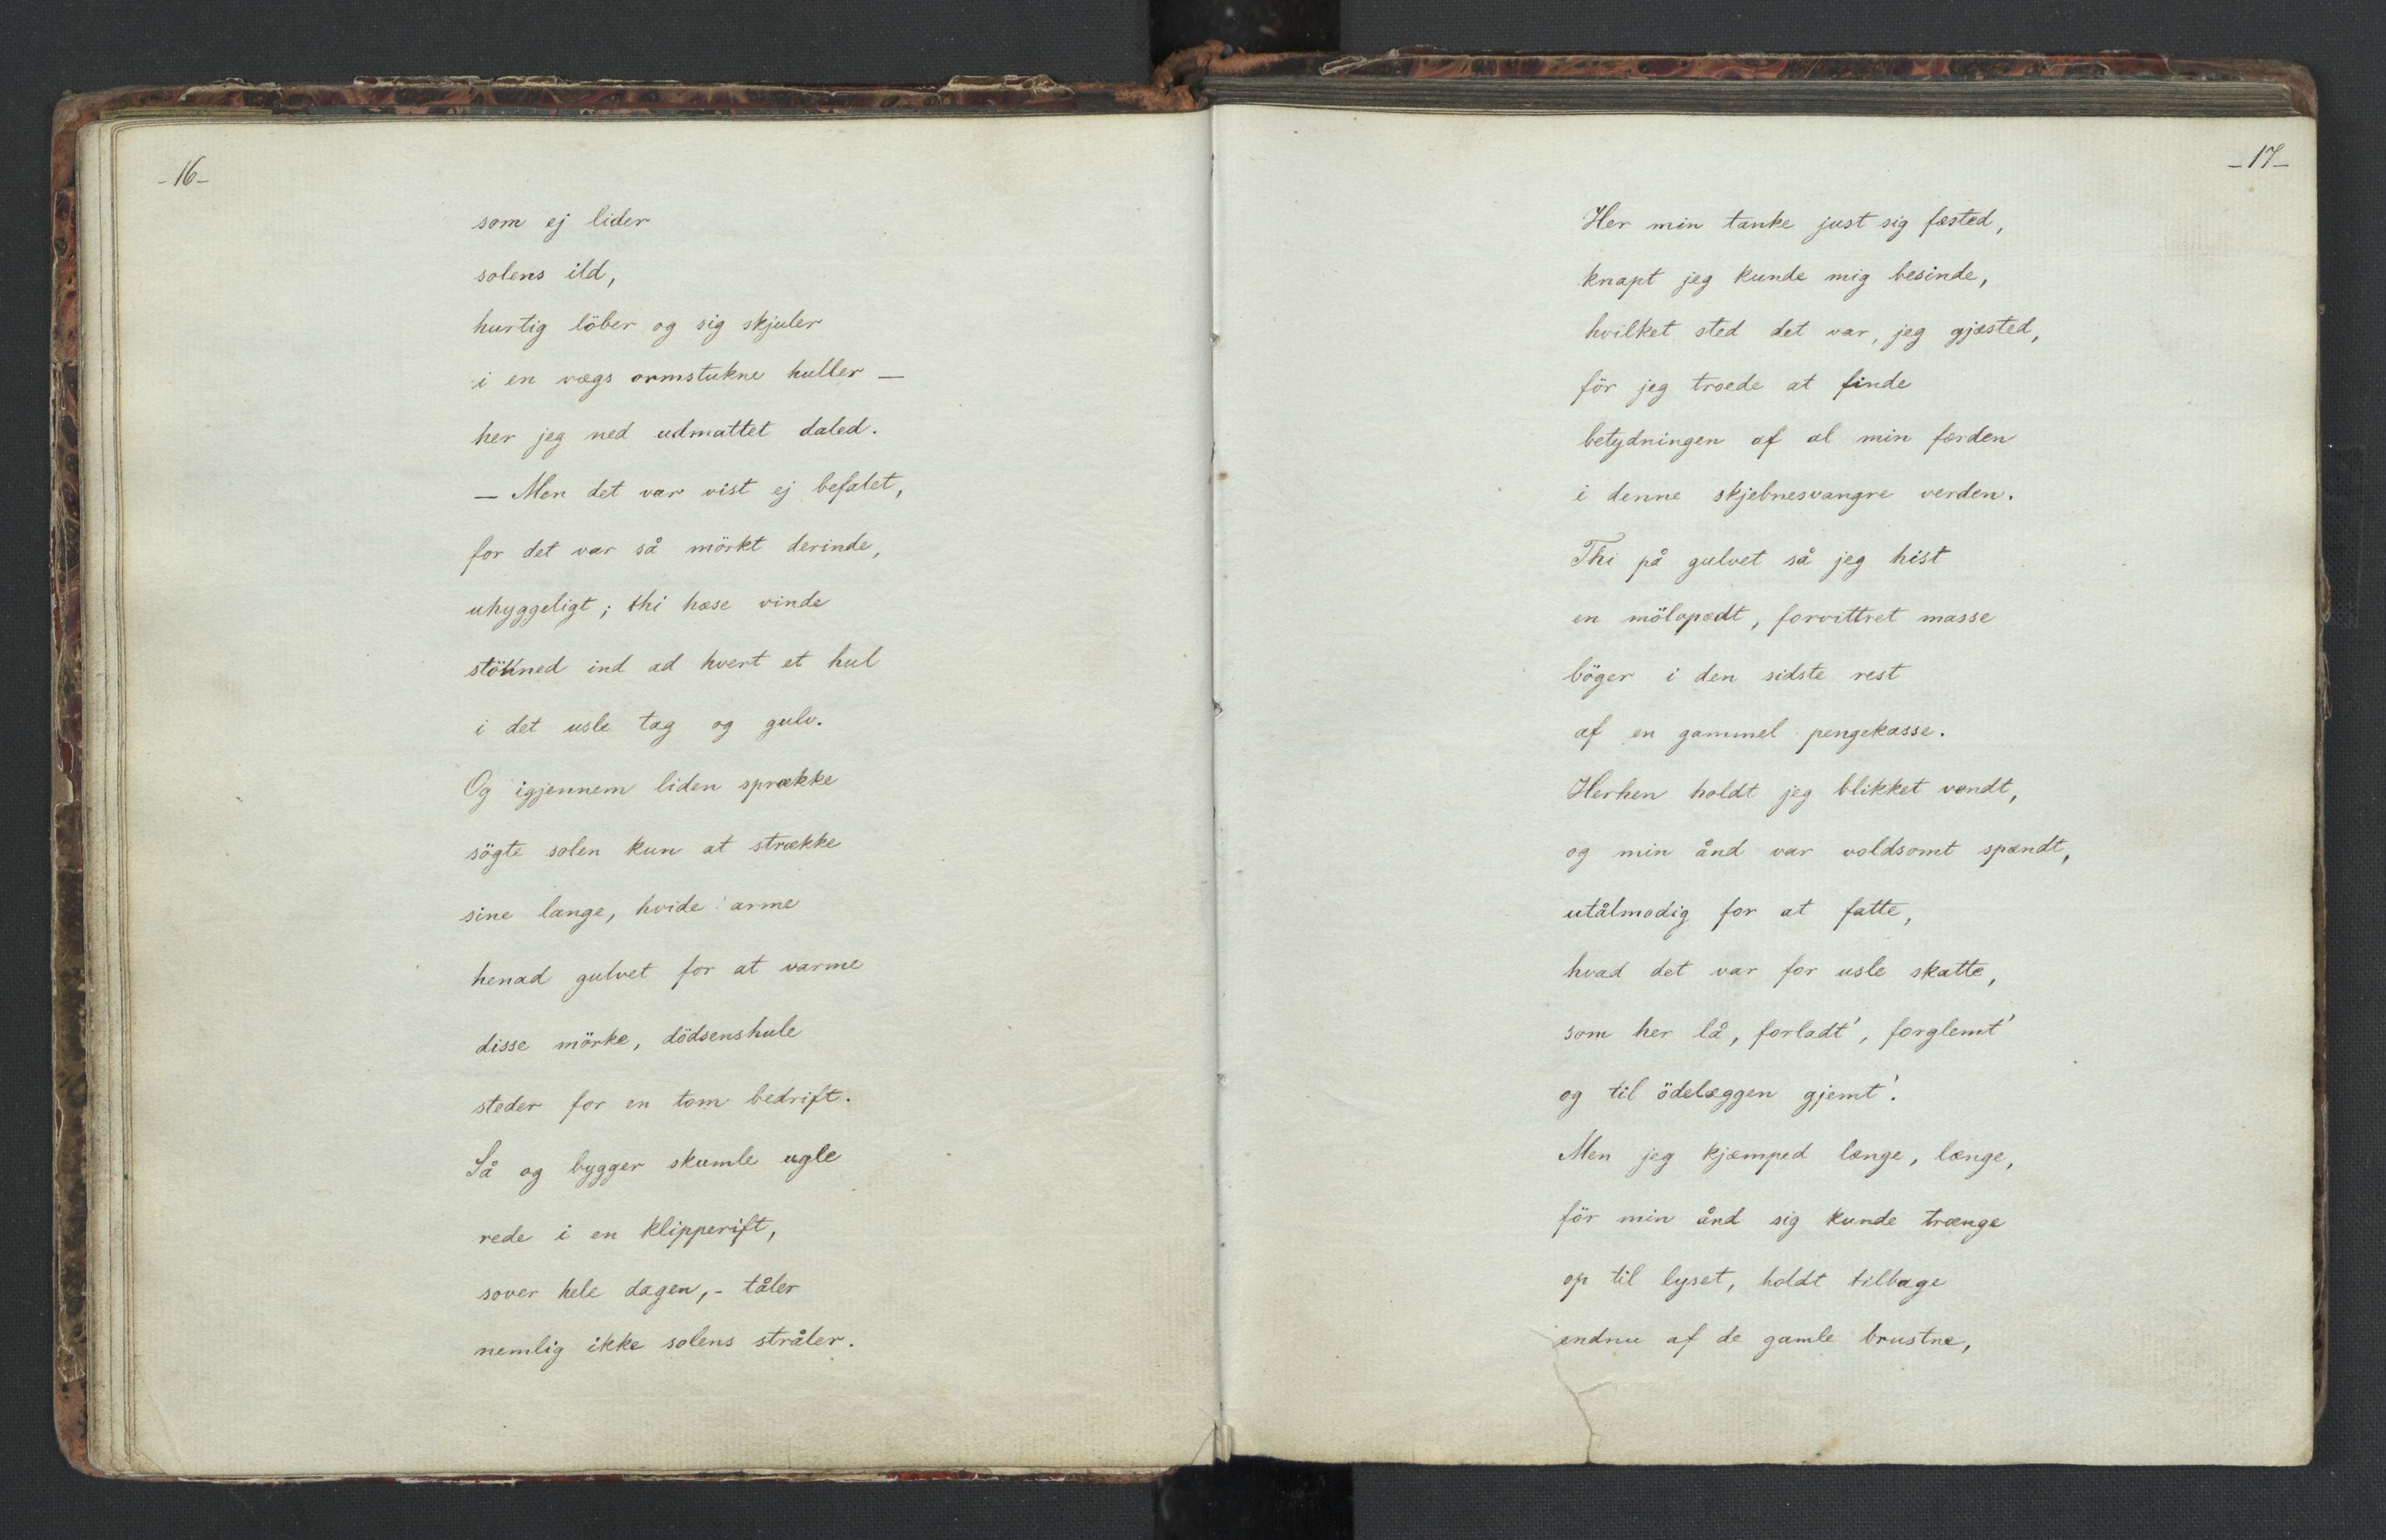 -16-
som ej lider
solens ild,
hurtig löber og sig skjuler
i en vægs ormstukne huller —
her jeg ned udmattet daled.
— Men det var vist ej befalet,
for det var så mörkt derinde,
uhyggeligt; thi hæse vinde
stönned ind ad hvert et hul
i det usle tag og gulv.
Og igjennem liden sprække
sögte solen kun at strække
sine lange, hvide arme
henad gulvet for at varme
disse mörke, dödsenshule
steder for en tom bedrift.
Så og bygger skumle ugle
rede i en klipperift,
sover hele dagen, - tåler
nemlig ikke solens stråler.
-17-
Her min tanke just sig fæsted,
knapt jeg kunde mig besinde,
hvilket sted det var, jeg gjæsted,
för jeg troede at finde
betydningen af al min færden
i denne skjebnesvangre verden.
Thi på gulvet så jeg hist
en mölopædt, forvittret masse
böger i den sidste rest
af en gammel pengekasse.
Herhen holdt jeg blikket vendt,
og min ånd var voldsomt spændt,
utålmodig for at fatte,
hvad det var for usle skatte,
som her lå, forladt', forglemt'
og til ödelæggen gjemt'.
Men jeg kjæmped længe, længe,
för min ånd sig kunde trænge
op til lyset, holdt tilbage
endnu af de gamle brustne,